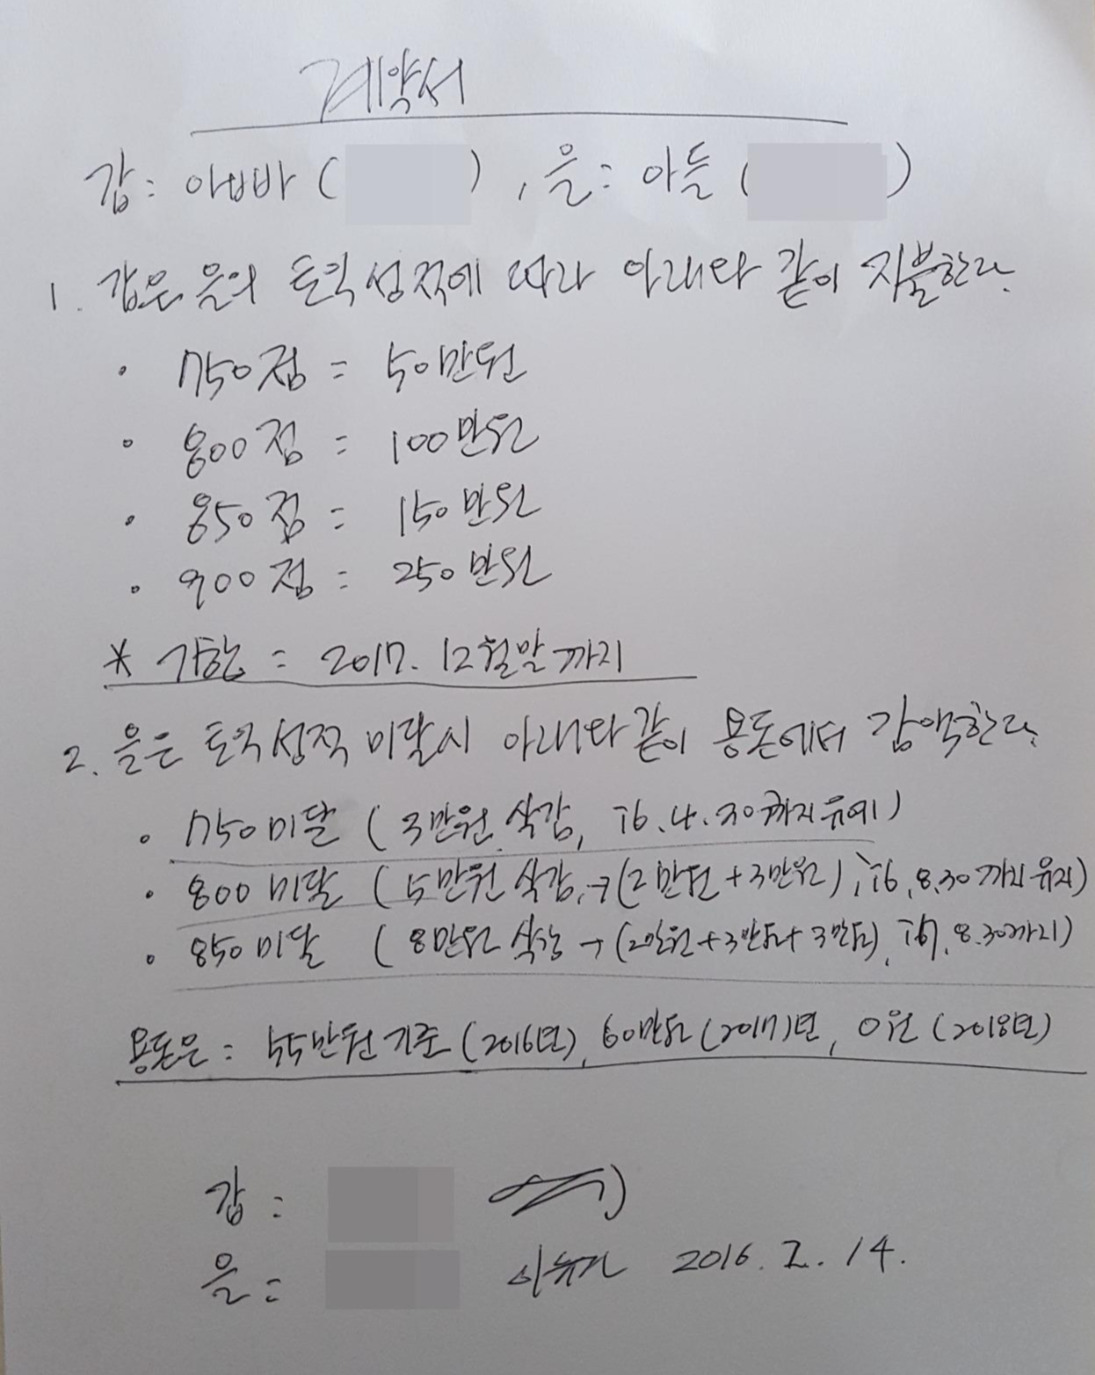 계약서
갑: 아빠 ( ), 을: 아들 ( )
1. 갑은 을의 토익성적에 따라 아래와 같이 지불한다.
· 750점 = 50만원
· 800점 = 100만원
· 850점 = 150만원
· 900점 = 250만원
* 기한 = 2017. 12월말까지
2. 을은 토익성적 미달시 아래와 같이 용돈에서 감액한다.
· 750미달 (3만원 삭감, '16.4.30까지 유예)
· 800미달 (5만원 삭감, → (2만원+3만원), '16.8.30까지 유지)
· 850미달 (8만원 삭감 → (2만원+3만원+3만원), 8.30까지)
용돈은 = 55만원 기준(2016년), 60만원(2017)년, 0원(2018년)
갑:
을: 2016. 2. 14.